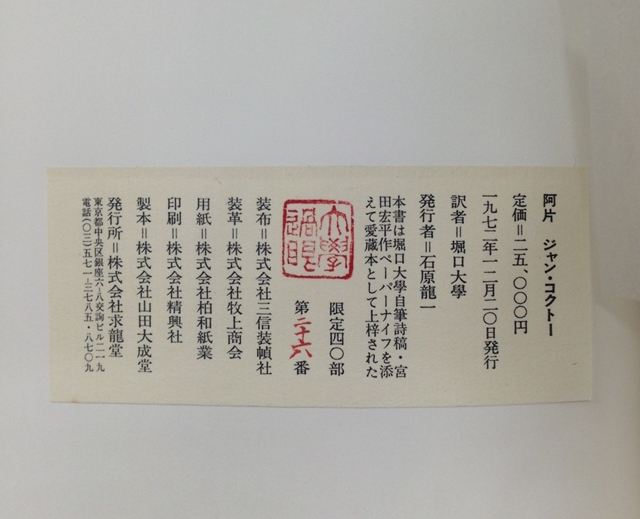 阿片　ジャン・コクトー
定価＝二五、〇〇〇円
一九七二年一二月二〇日発行
訳者＝堀口大學
発行者＝石原龍一
本書は堀口大學自筆詩稿・宮
田宏平作ペーパーナイフを添
えて愛蔵本として上梓された
限定四〇部
第二十六番
装布＝株式会社三信装幀社
装革＝株式会社牧上商会
用紙＝株式会社柏和紙業
印刷＝株式会社精興社
製本＝株式会社山田大成堂
発行所＝株式会社求龍堂
東京都中央区銀座六−八交詢ビル二一九
電話（〇三）五七一−三七八五・八七〇九